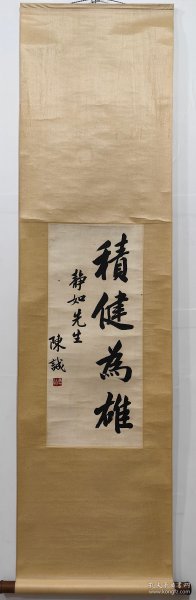 積健為雄
静如先生
陳誠